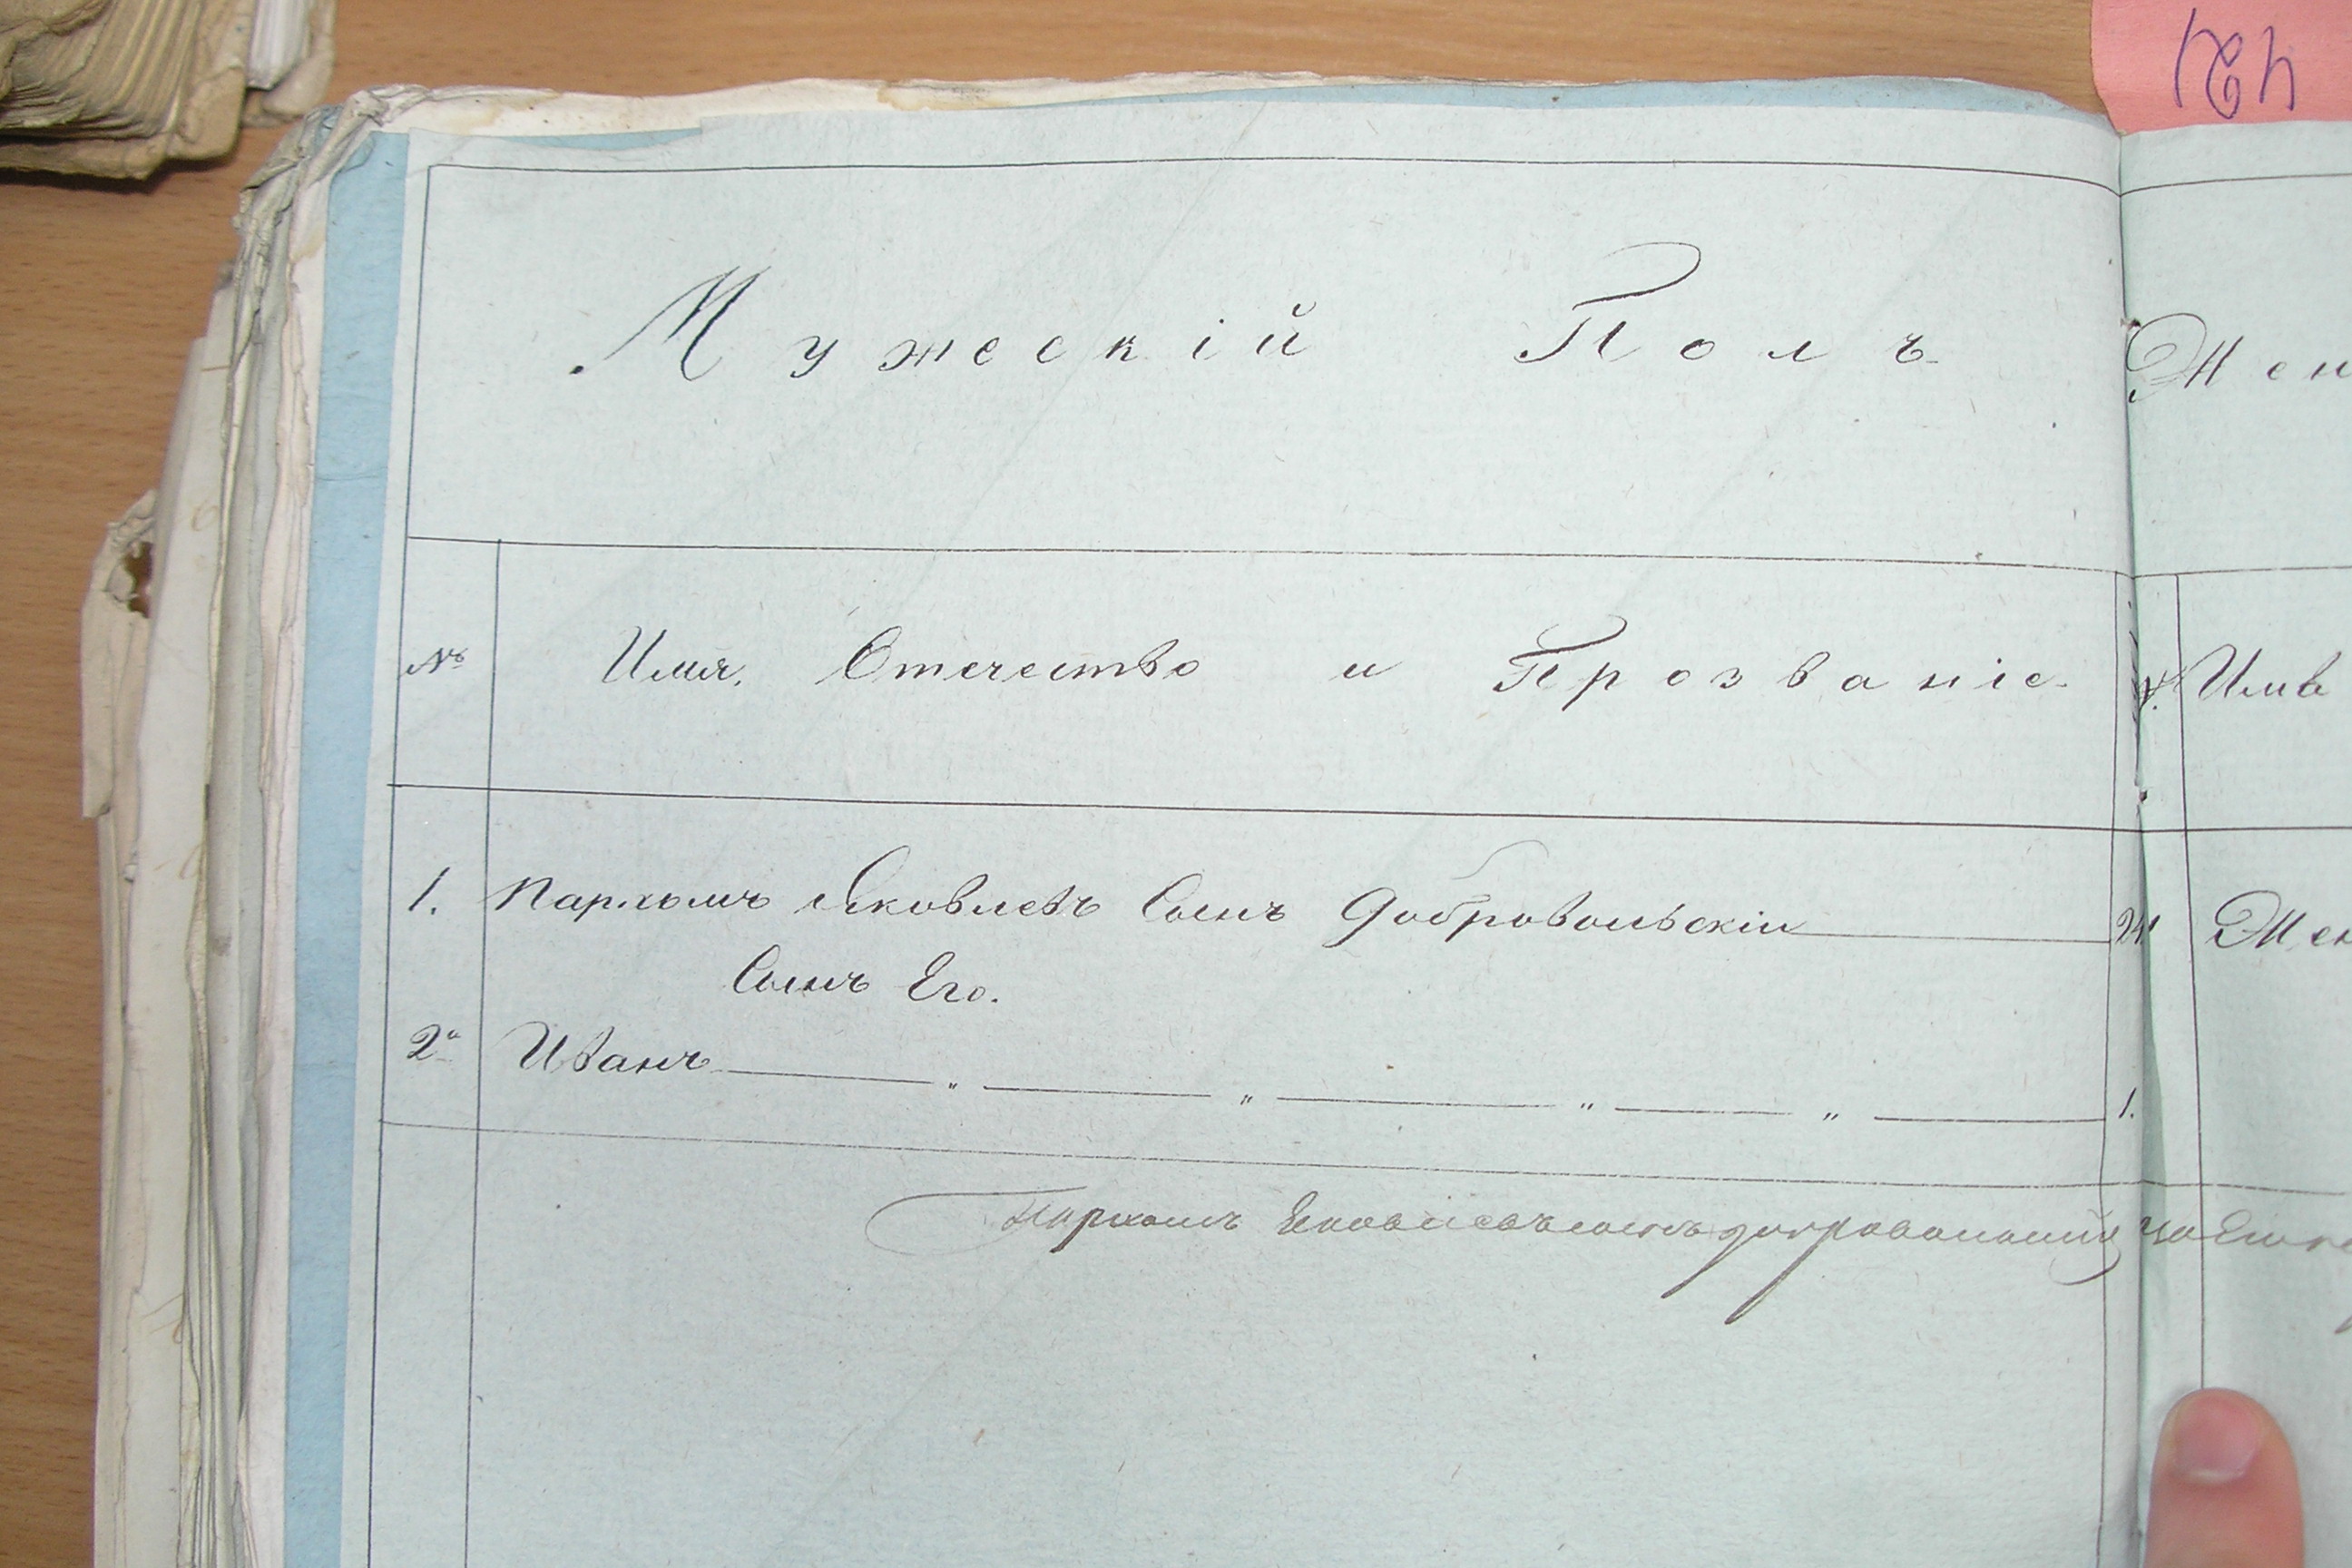 421
Мужескій Полъ
Жен
№ Имя, Отечество и Прозваніе Имя
1. Пархомъ Яковлевъ Сынъ Добровольскій 24 Жен
Сынъ Его.
2. Иванъ — „ — „ — „ — „ — 1.
Пархомъ Яковлевъ сынъ добровольский